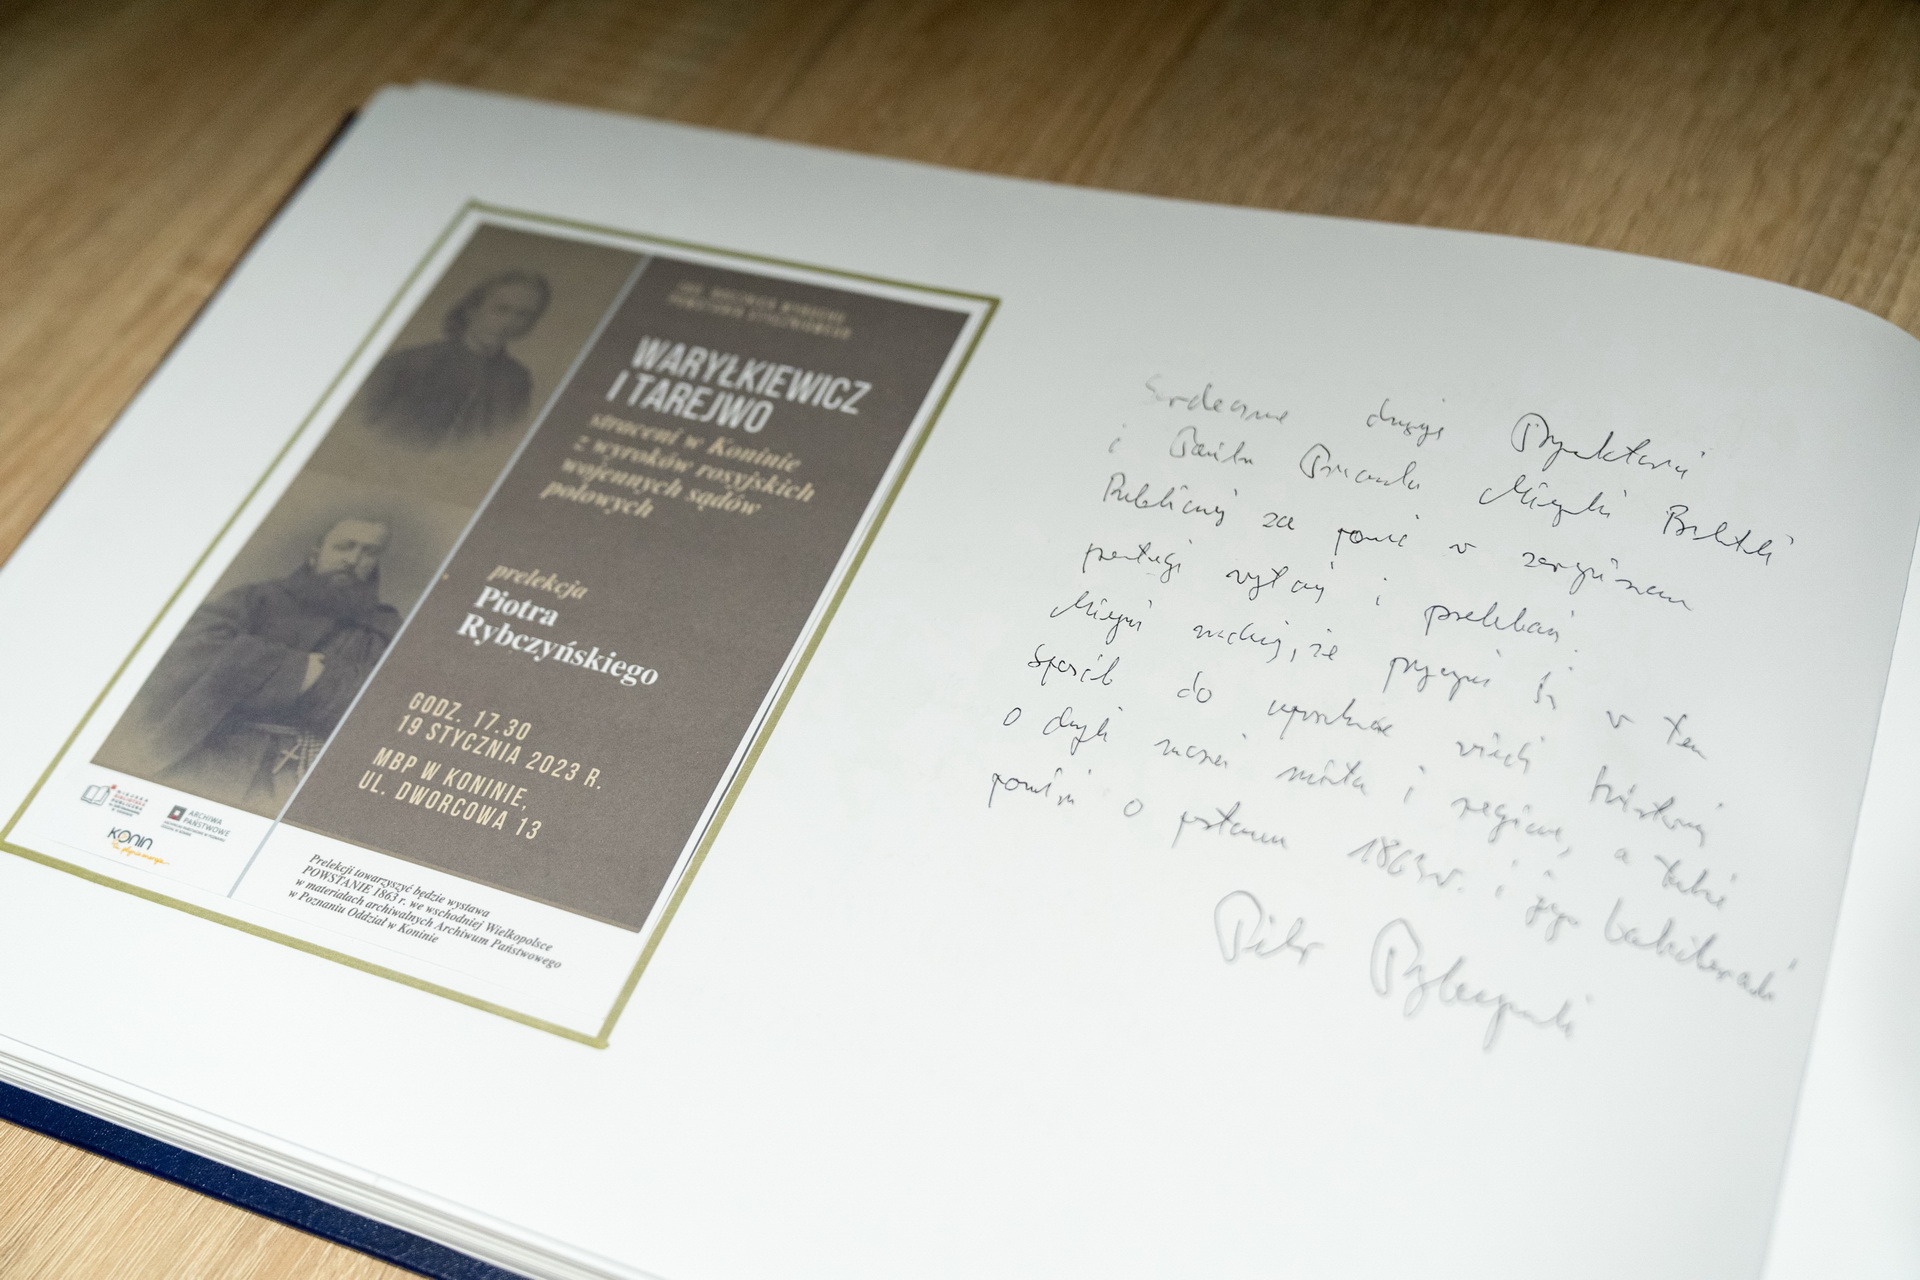 160. ROCZNICA WYBUCHU
POWSTANIA STYCZNIOWEGO
WARYŁKIEWICZ
I TAREJWO
straceni w Koninie
z wyroków rosyjskich
wojennych sądów
polowych
prelekcja
Piotra
Rybczyńskiego
GODZ. 17.30
19 STYCZNIA 2023 R.
MBP W KONINIE,
UL. DWORCOWA 13
MIEJSKA
BIBLIOTEKA
PUBLICZNA
ARCHIWA
PAŃSTWOWE
KONIN
Prelekcji towarzyszyć będzie wystawa
POWSTANIE 1863 r. we wschodniej Wielkopolsce
w materiałach archiwalnych Archiwum Państwowego
w Poznaniu Oddział w Koninie
Serdecznie dziękuję Dyrektorowi
i Miejskiej Biblioteki
Publicznej za pomoc w zorganizowaniu
wystawy i prelekcji.
Mam nadzieję, że się w ten
sposób do wiedzy historycznej
o dziejach miasta i regionu, a także
pamięci o powstaniu 1863 r. i jego bohaterach
Piotr Rybczyński